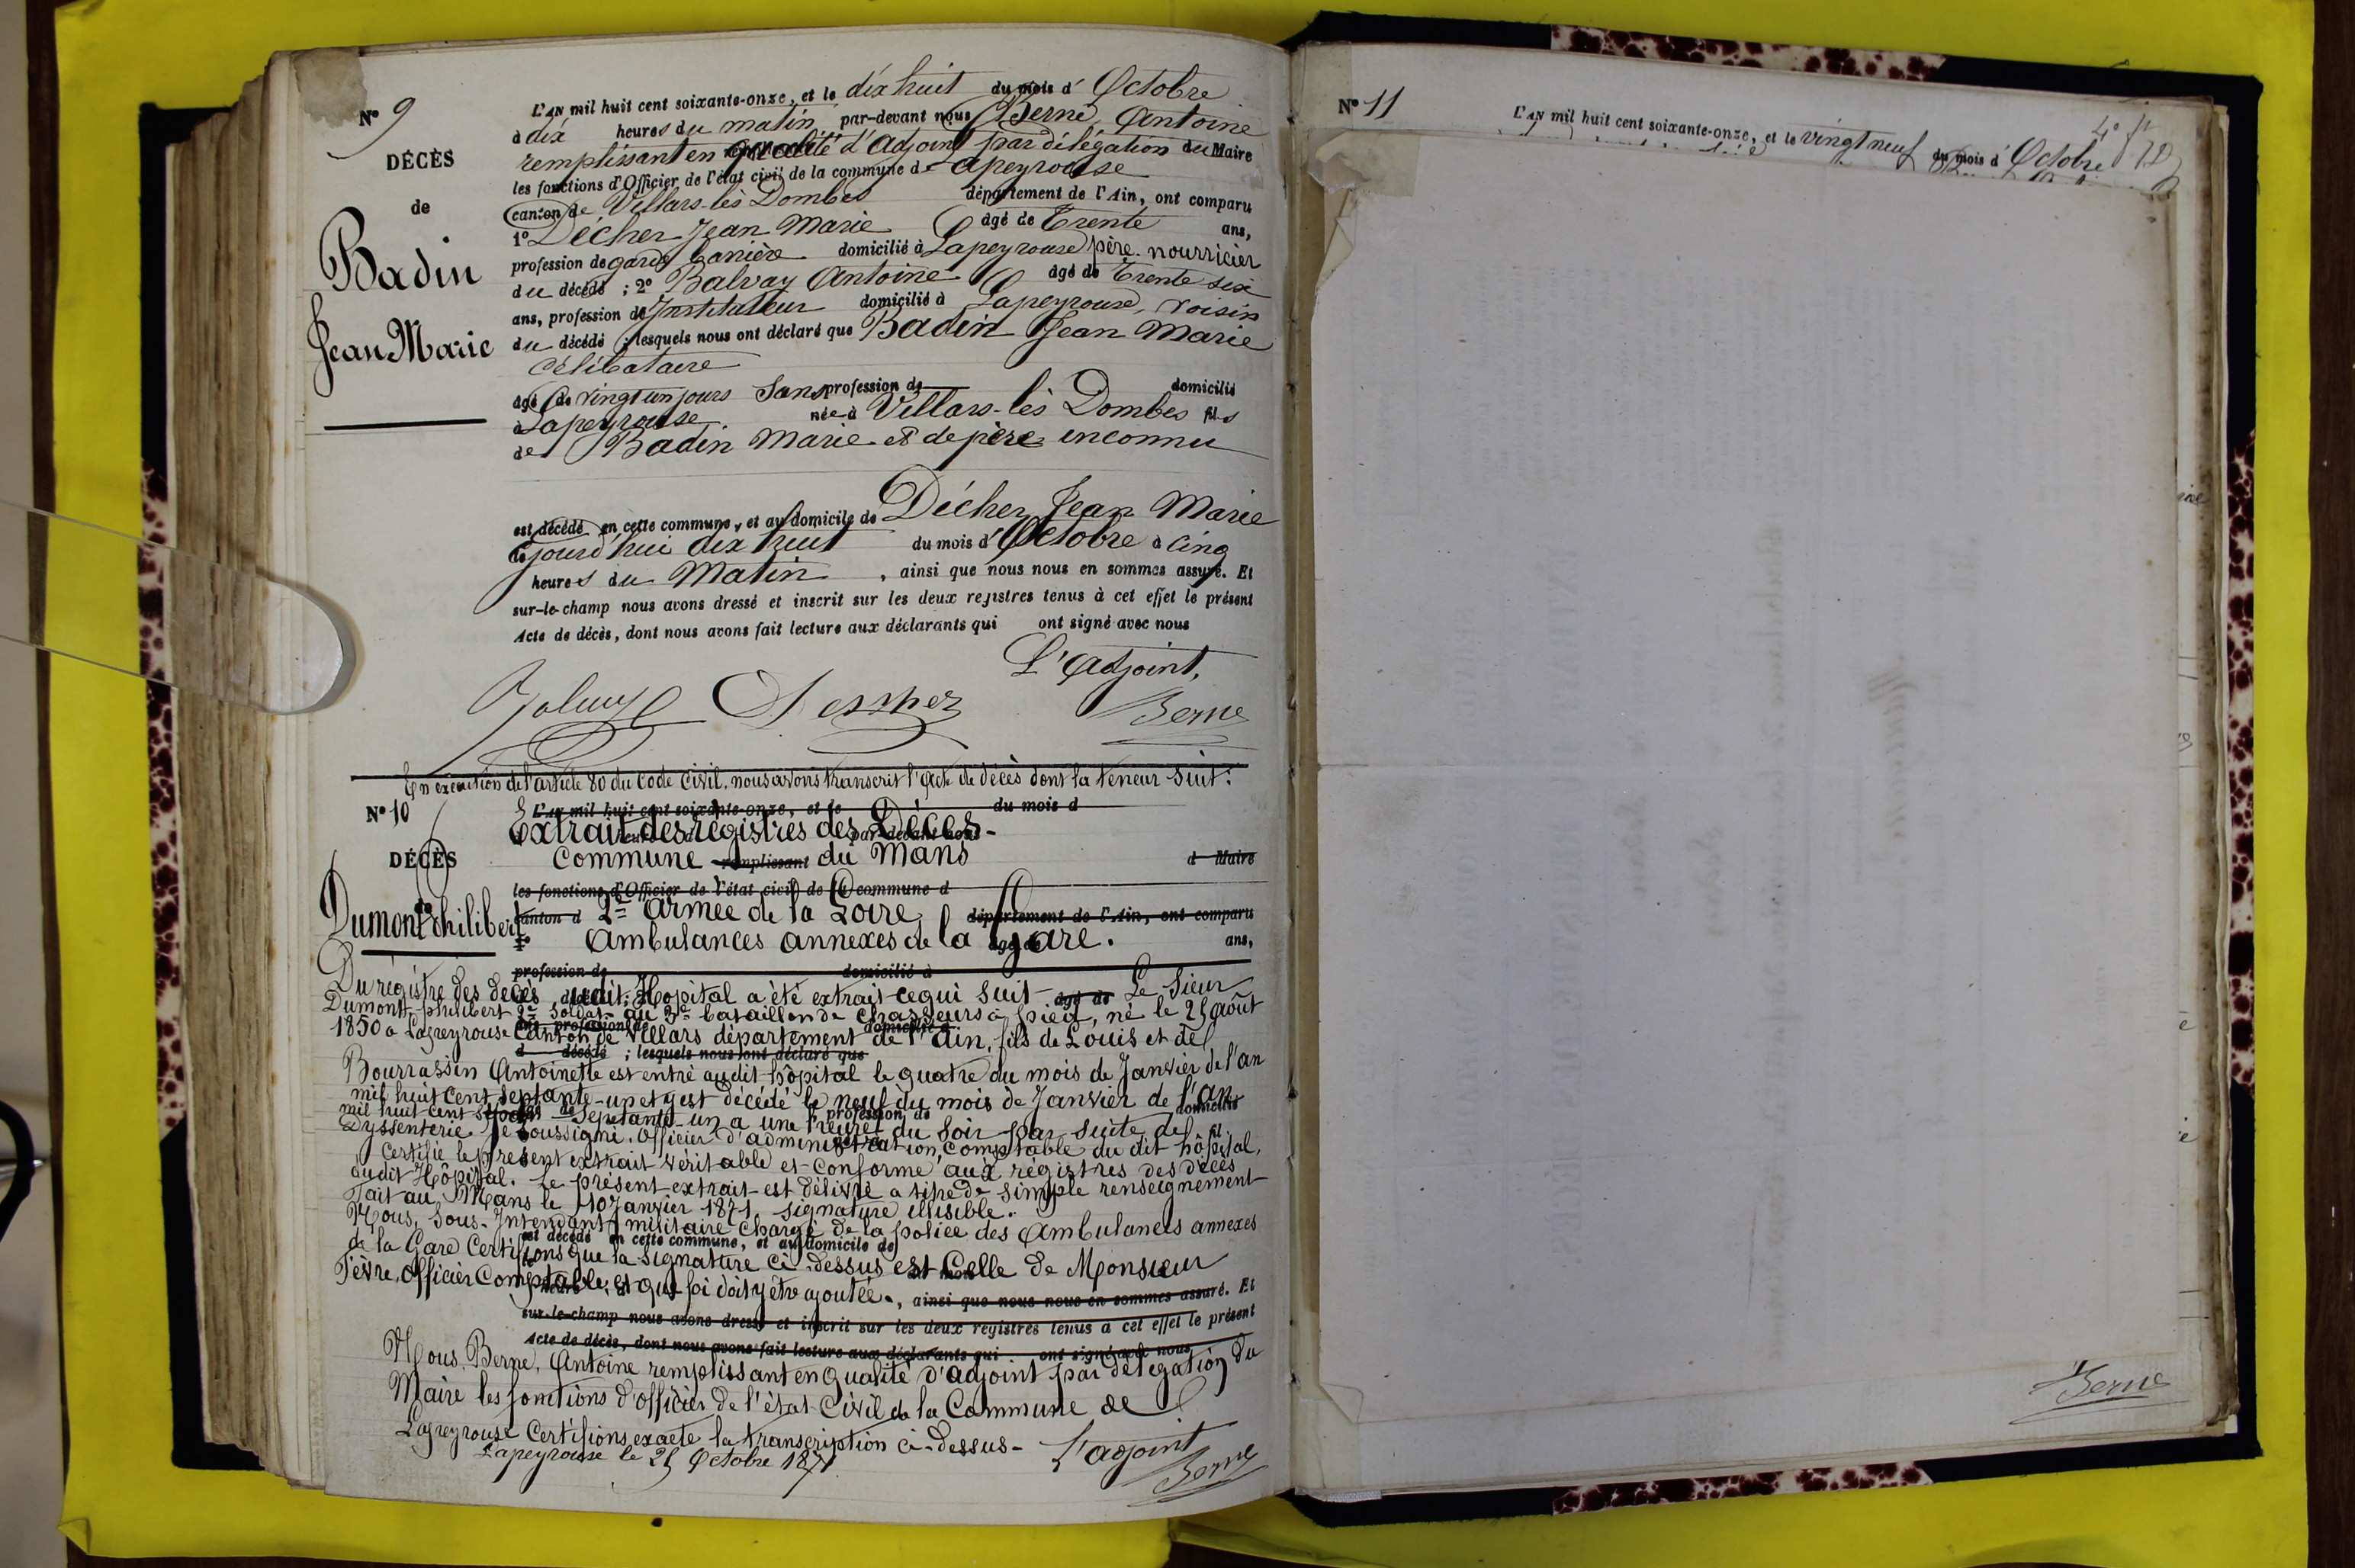 N° 9
DÉCÈS
de
Badin
Jean Marie
L'AN mil huit cent soixante-onze, et le dix huit du mois d' Octobre
à dix heures du matin par-devant nous Berne, Antoine
remplissant en qualité d'Adjoint par délégation du Maire
les fonctions d'Officier de l'état civil de la commune de Lapeyrouse
canton de Villars-lès Dombes département de l'Ain, ont comparu
1° Décher Jean Marie âgé de Trente ans,
profession de garde barrière domicilié à Lapeyrouse père nourricier
du décédé ; 2° Balvay Antoine âgé de Trente six
ans, profession de Instituteur domicilié à Lapeyrouse, voisin
du décédé ; lesquels nous ont déclaré que Badin Jean Marie
célibataire
âgé de vingt un jours Sans profession de domicilié
à Lapeyrouse née à Villars-lès Dombes fils
de Badin Marie et de père inconnu
est décédé en cette commune, et au domicile de Décher Jean Marie
cejourd'hui dix huit du mois d' Octobre à cinq
heures du Matin, ainsi que nous nous en sommes assuré. Et
sur-le-champ nous avons dressé et inscrit sur les deux registres tenus à cet effet le présent
Acte de décès, dont nous avons fait lecture aux déclarants qui ont signé avec nous
L'Adjoint,
Berne
En exécution de l'article 80 du Code Civil, nous avons transcrit l'acte de décès dont la teneur suit :
N° 10
DÉCÈS
de
Dumont Philibert
L'AN mil huit cent soixante-onze, et le du mois d
Extrait des régistres des Décès-
Commune remplissant du Mans d Maire
les fonctions d'Officier de l'état civil de la commune d
canton d 2me Armée de la Loire, département de l'Ain, ont comparu
1° Ambulances annexes de la Gare. âgé de ans,
profession de domicilié à
Du régistre des decès dudit Hopital a été extrait ce qui suit âgé de Le Sieur
Dumont, philibert 2me Soldat au bataillon de Chasseurs à pied, né le 25 août
1850 à Lapeyrouse Canton de Villars département de l'Ain, fils de Louis et de
d décédé ; lesquels nous ont déclaré que
Bourrassin Antoinette est entré audit hôpital le quatre du mois de Janvier de l'an
mil huit Cent septante-un et y est décédé le neuf du mois de Janvier de l'an
mil huit cent Septante-un a une heure du Soir par suite de
Dyssenterie. Je Soussigné. Officier d'administration, Comptable du dit hôpital,
Certifie le présent extrait véritable et conforme aux régistres des décès
dudit Hôpital. Le présent extrait est délivré a titre de simple renseignement
Fait au Mans le 10 Janvier 1871. signature illisible.
Nous, Sous-Intendant militaire chargé de la police des Ambulances annexes
est décédé en cette commune, et au domicile de
de la Gare Certifions que la signature ci-dessus est Celle de Monsieur
Fèvre, Officier Comptable, et que foi doit y être ajoutée., ainsi que nous nous en sommes assuré. Et
sur-le-champ nous avons dressé et inscrit sur les deux registres tenus à cet effet le présent
Acte de décès, dont nous avons fait lecture aux déclarants qui ont signé avec nous
Nous, Berne, Antoine remplissant en qualité d'adjoint par délégation du
Maire les fonctions d'officier de l'état Civil de la Commune de
Lapeyrouse Certifions exacte la transcription ci-dessus-
Lapeyrouse le 25 Octobre 1871
L'adjoint
Berne
N° 11
L'AN mil huit cent soixante-onze, et le vingt neuf du mois d' Octobre
Berne